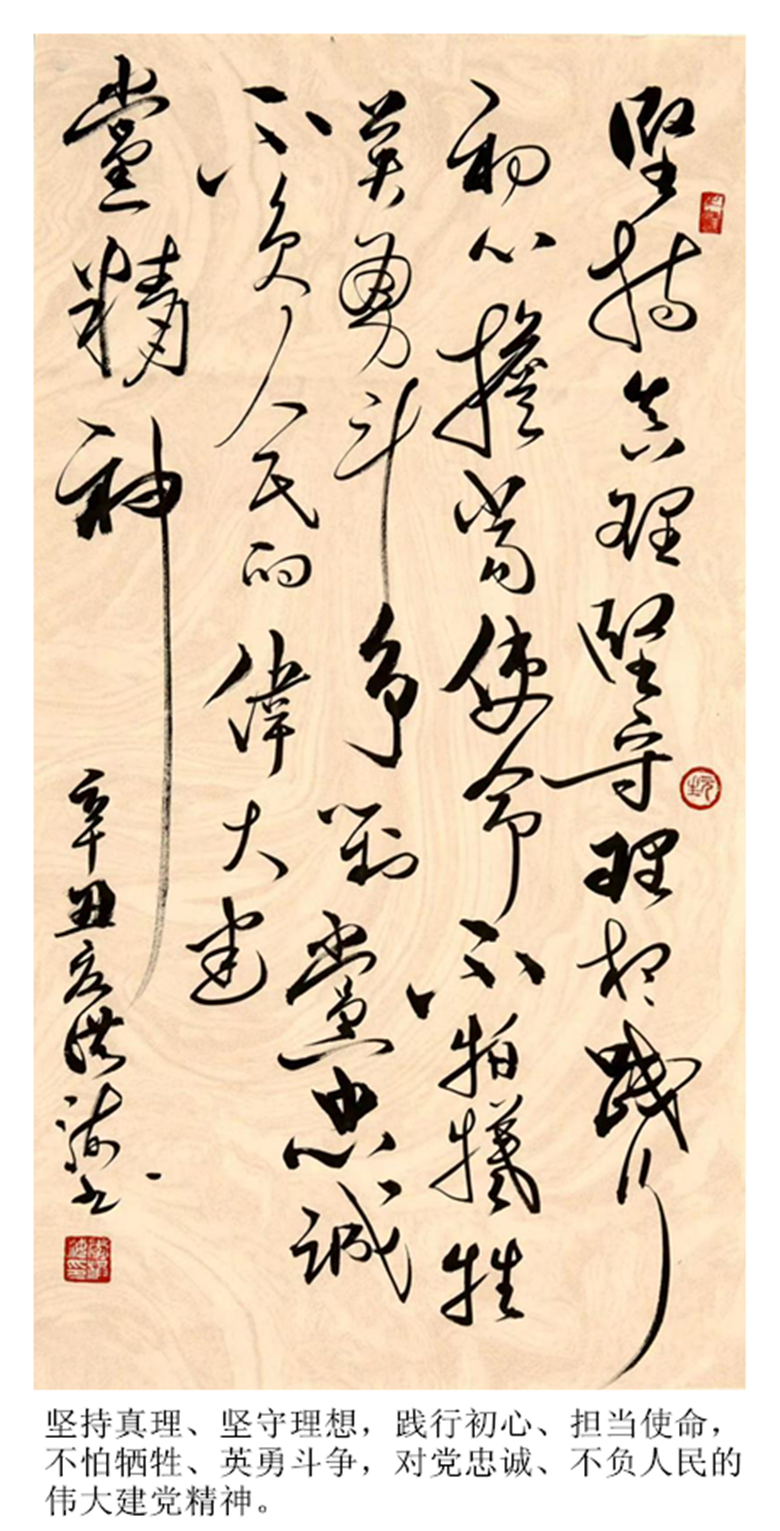 堅持真理堅守理想踐行
初心擔當使命不怕犧牲
英勇斗争對黨忠誠
不負人民的偉大建
黨精神
辛丑夏洪
坚持真理、坚守理想，践行初心、担当使命，
不怕牺牲、英勇斗争，对党忠诚、不负人民的
伟大建党精神。